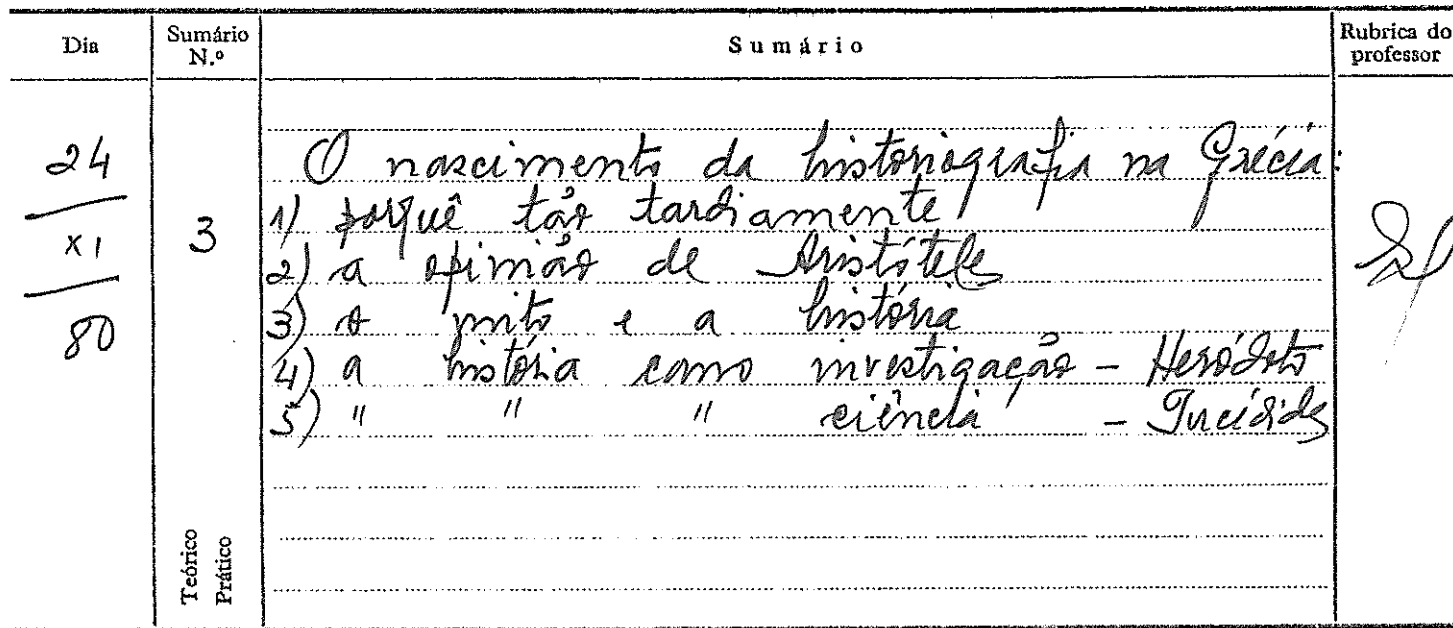 Dia
Sumário N.º
Sumário
Rubrica do professor
24
XI
80
3
O nascimento da historiografia na Grécia:
1) porquê tão tardiamente
2) a opinião de Aristóteles
3) o mito e a história
4) a história como investigação - Heródoto
5) " " " ciência - Tucídides
Teórico
Prático